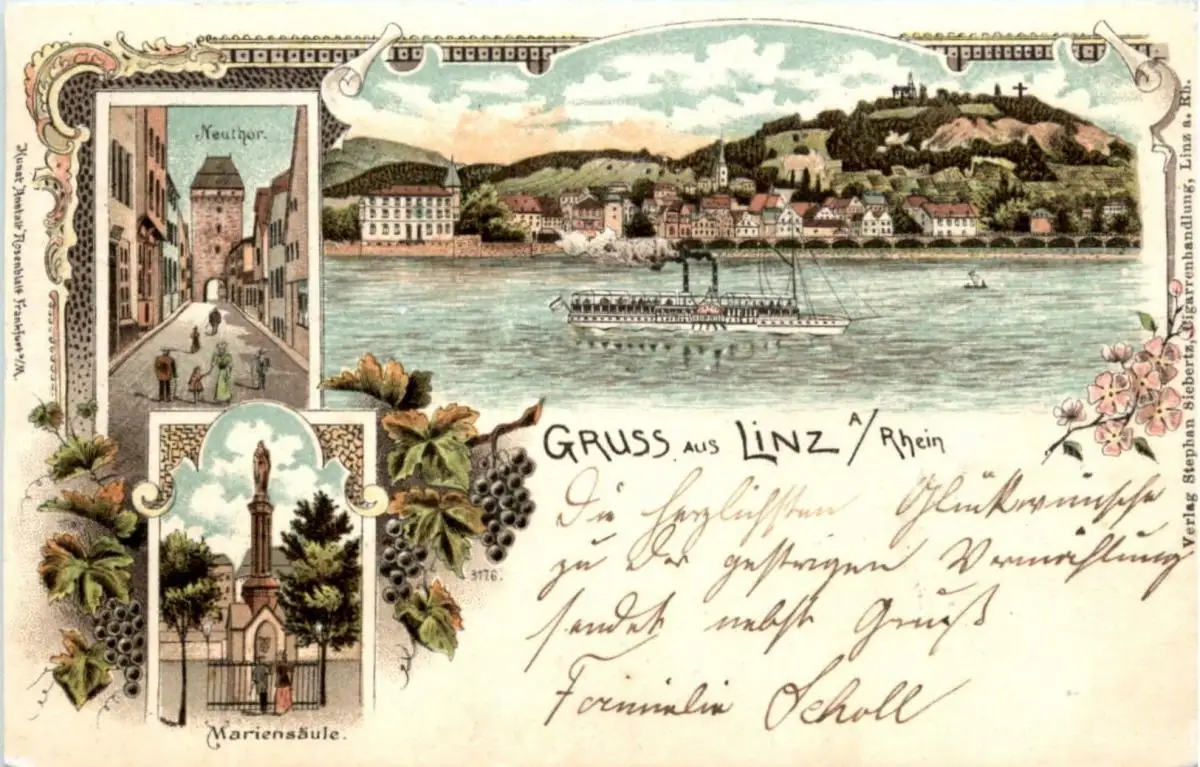 Neuthor.
GRUSS AUS LINZ A/Rhein
Die herzlichsten Glückwünsche
zu der gestrigen Vermählung
sendet nebst Gruß
Familie Scholl
3176.
Mariensäule.
Kunst-Anstalt Rosenblatt Frankfurt a/M.
Verlag Stephan Siebertz, Cigarrenhandlung, Linz a. Rh.